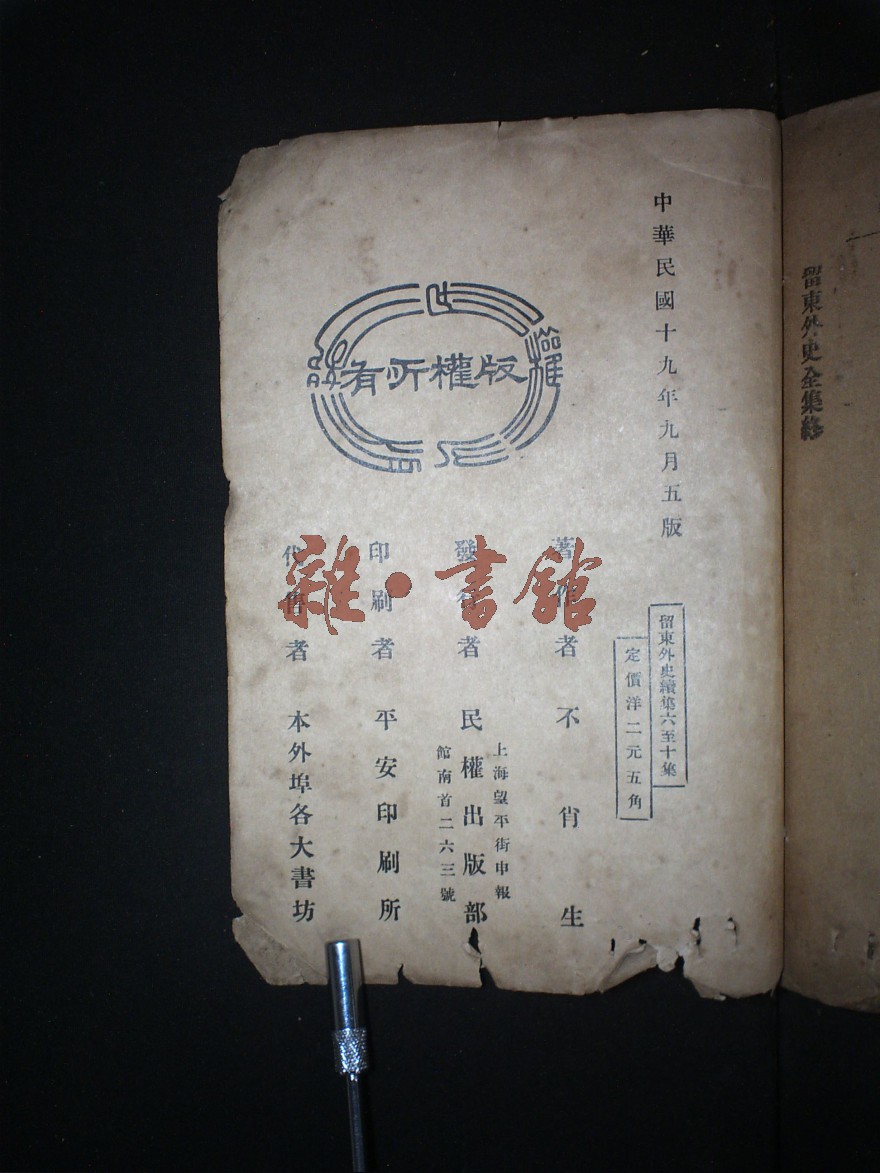 留東外史全集終
中華民國十九年九月五版
留東外史續集六至十集
定價洋二元五角
版權所有
著作者 不肖生
發行者 民權出版部
上海望平街申報
館南首二六三號
印刷者 平安印刷所
代售者 本外埠各大書坊
雜·書館